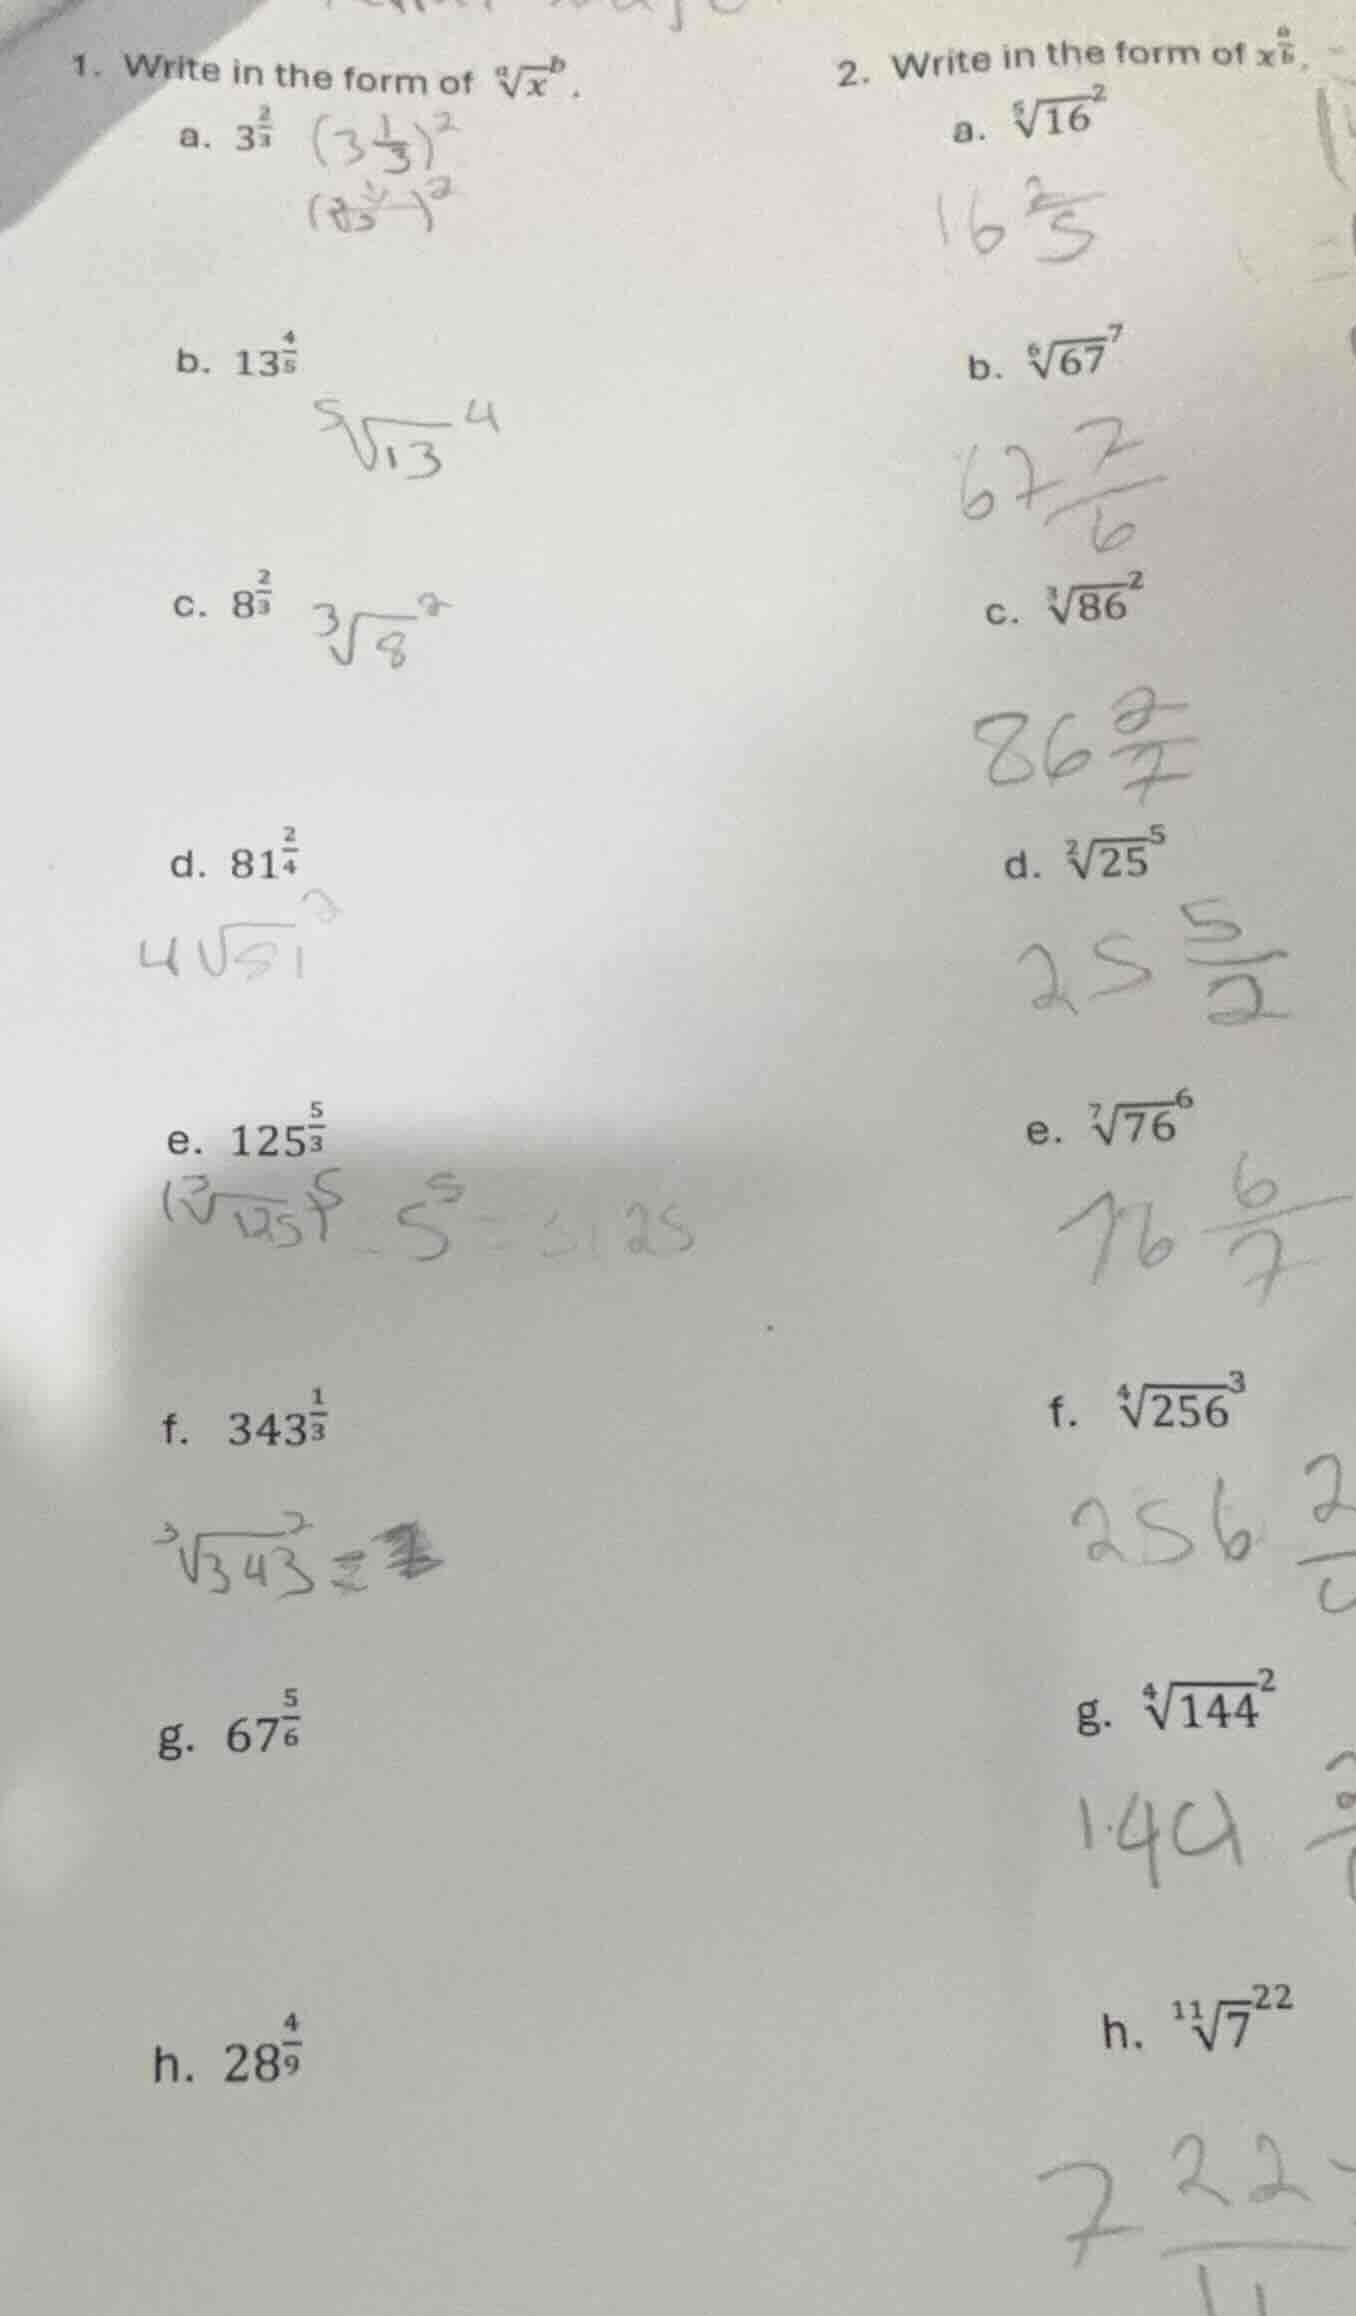 1. Write in the form of ᵃ√x^b.
a. 3^(2/3) (3 1/3)^2
( )^2
b. 13^(4/5)
⁵√13 ^4
c. 8^(2/3) ³√8 ^2
d. 81^(2/4)
4√81 ^2
e. 125^(5/3)
(³√125)^5 5^5 = 3125
f. 343^(1/3)
³√343 ^2 =
g. 67^(5/6)
h. 28^(4/9)
2. Write in the form of x^(a/b).
a. ⁵√16^2
16 2/5
b. ⁶√67^7
67 7/6
c. ³√86^2
86 2/7
d. ²√25^5
25 5/2
e. ⁷√76^6
76 6/7
f. ⁴√256^3
256
g. ⁴√144^2
144
h. ¹¹√7^22
7 22/11